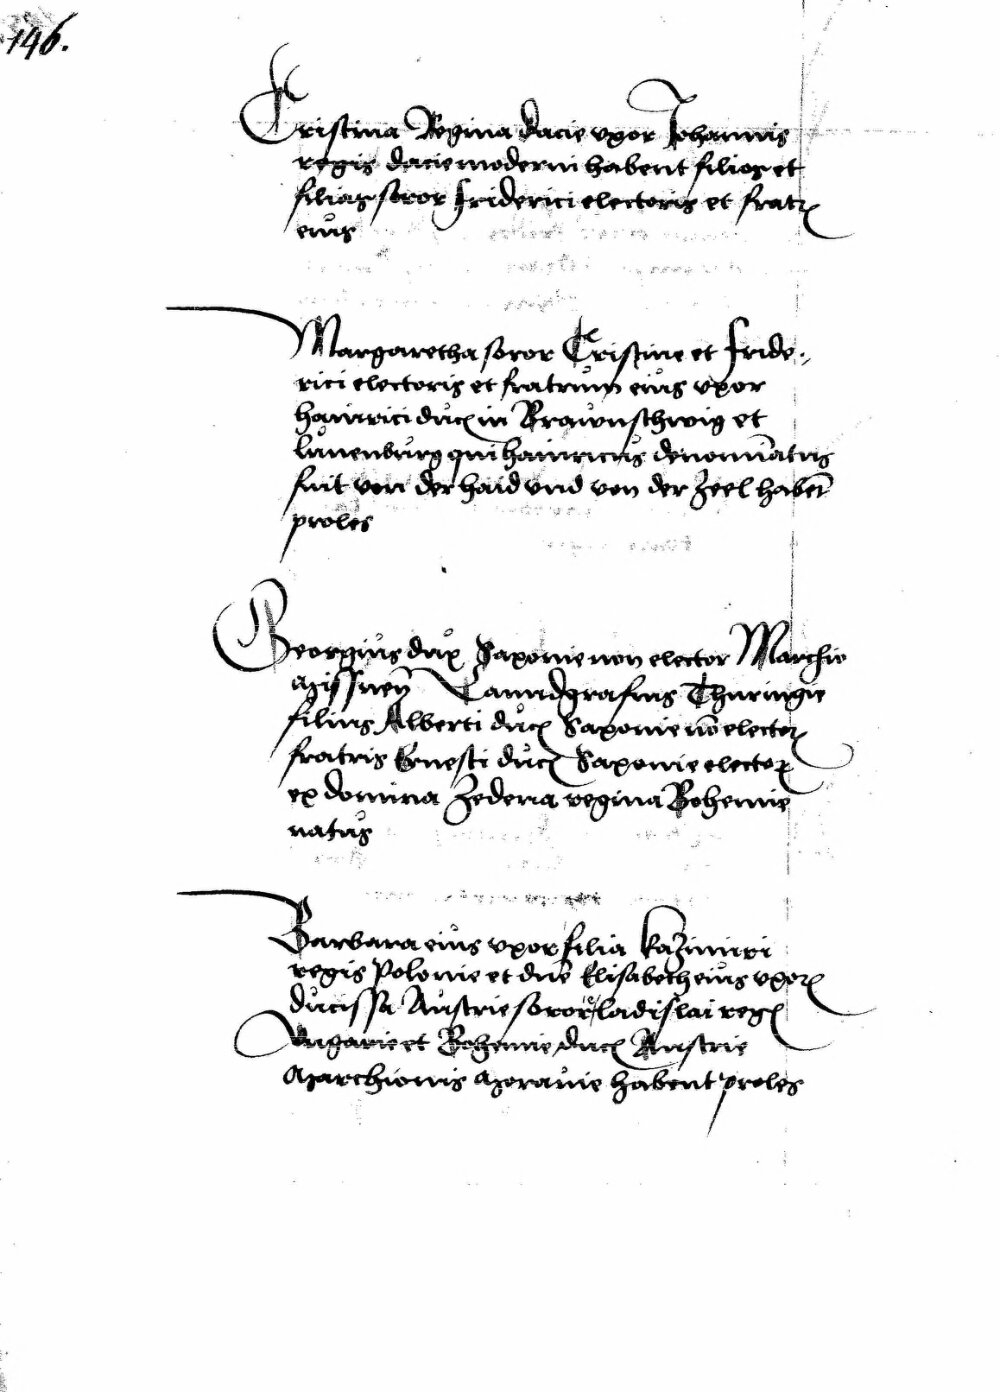 146.
Cristina Regina dacie uxor Johannis
regis dacie moderni habent filios et
filias soror friderici electoris et fratr
eius
Margaretha soror Cristine et fride-
rici electoris et fratrum eius uxor
hainrici duc in Braunschwig et
lunenburg qui hainricus denominatus
fuit von der haid und von der Zeel habet
proles
Georgius dux Saxonie non elector Marchio
Missnen Lanndgrafius Thuringie
filius Alberti duc Saxonie no elector
fratris Ernesti duc Saxonie elector
ex domina Zedena regina Bohemie
natus
Barbara eius uxor filia Kazimiri
regis Polonie et dne Elisabeth eius uxor
ducissa Austrie soror ladislai reg
Ungarie et Bohemie duc Austrie
Marchionis Moravie habent proles